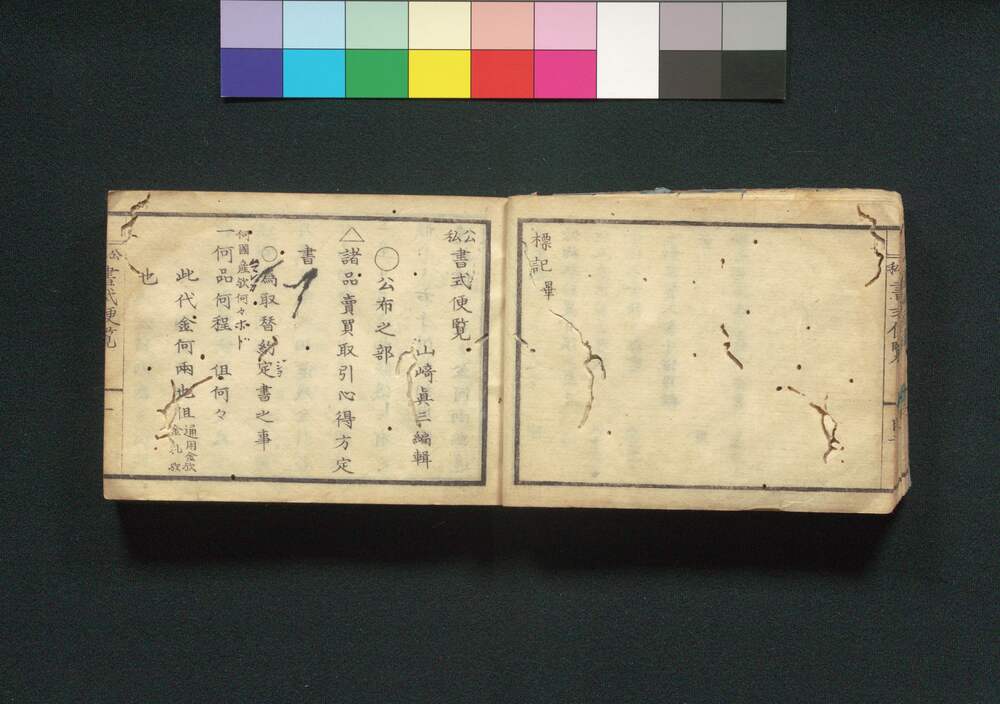 標記畢
公私書式便覧
山﨑眞三編輯
◯公布之部
△諸品賣買取引心得方定
書
◯為取替約定書之事
何國産歟何々ホド
一何品何程 但何々
此代金何兩也但通用金歟金札歟
也
書式便覧